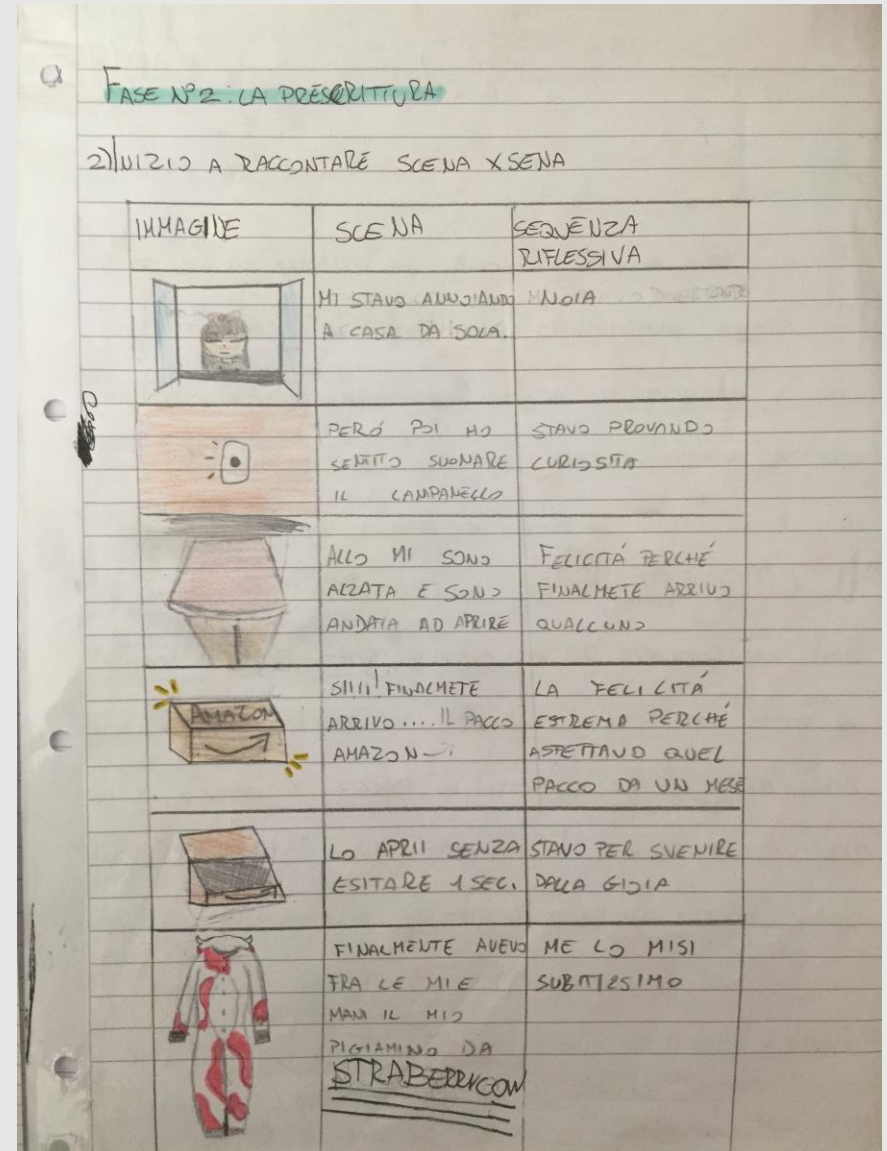 FASE N°2: LA PRESCRITTURA
2) INIZIO A RACCONTARE SCENA X SENA
IMMAGINE
SCENA
SEQUENZA
RIFLESSIVA
MI STAVO ANNOIANDO
A CASA DA SOLA.
NOIA
PERÓ POI HO
SENTITO SUONARE
IL CAMPANELLO
STAVO PROVANDO
CURIOSITA
ALLO MI SONO
ALZATA E SONO
ANDATA AD APRIRE
FELICITÁ PERCHÉ
FINALMETE ARRIVO
QUALCUNO
AMAZON
SIIII! FINALMETE
ARRIVO.... IL PACCO
AMAZON
LA FELICITÁ
ESTREMA PERCHÉ
ASPETTAVO QUEL
PACCO DA UN MESE
LO APRII SENZA
ESITARE 1 SEC.
STAVO PER SVENIRE
DALLA GIOIA
FINALMENTE AVEVO
FRA LE MIE
MANI IL MIO
PIGIAMINO DA
STRABERRYCOW
ME LO MISI
SUBITISSIMO